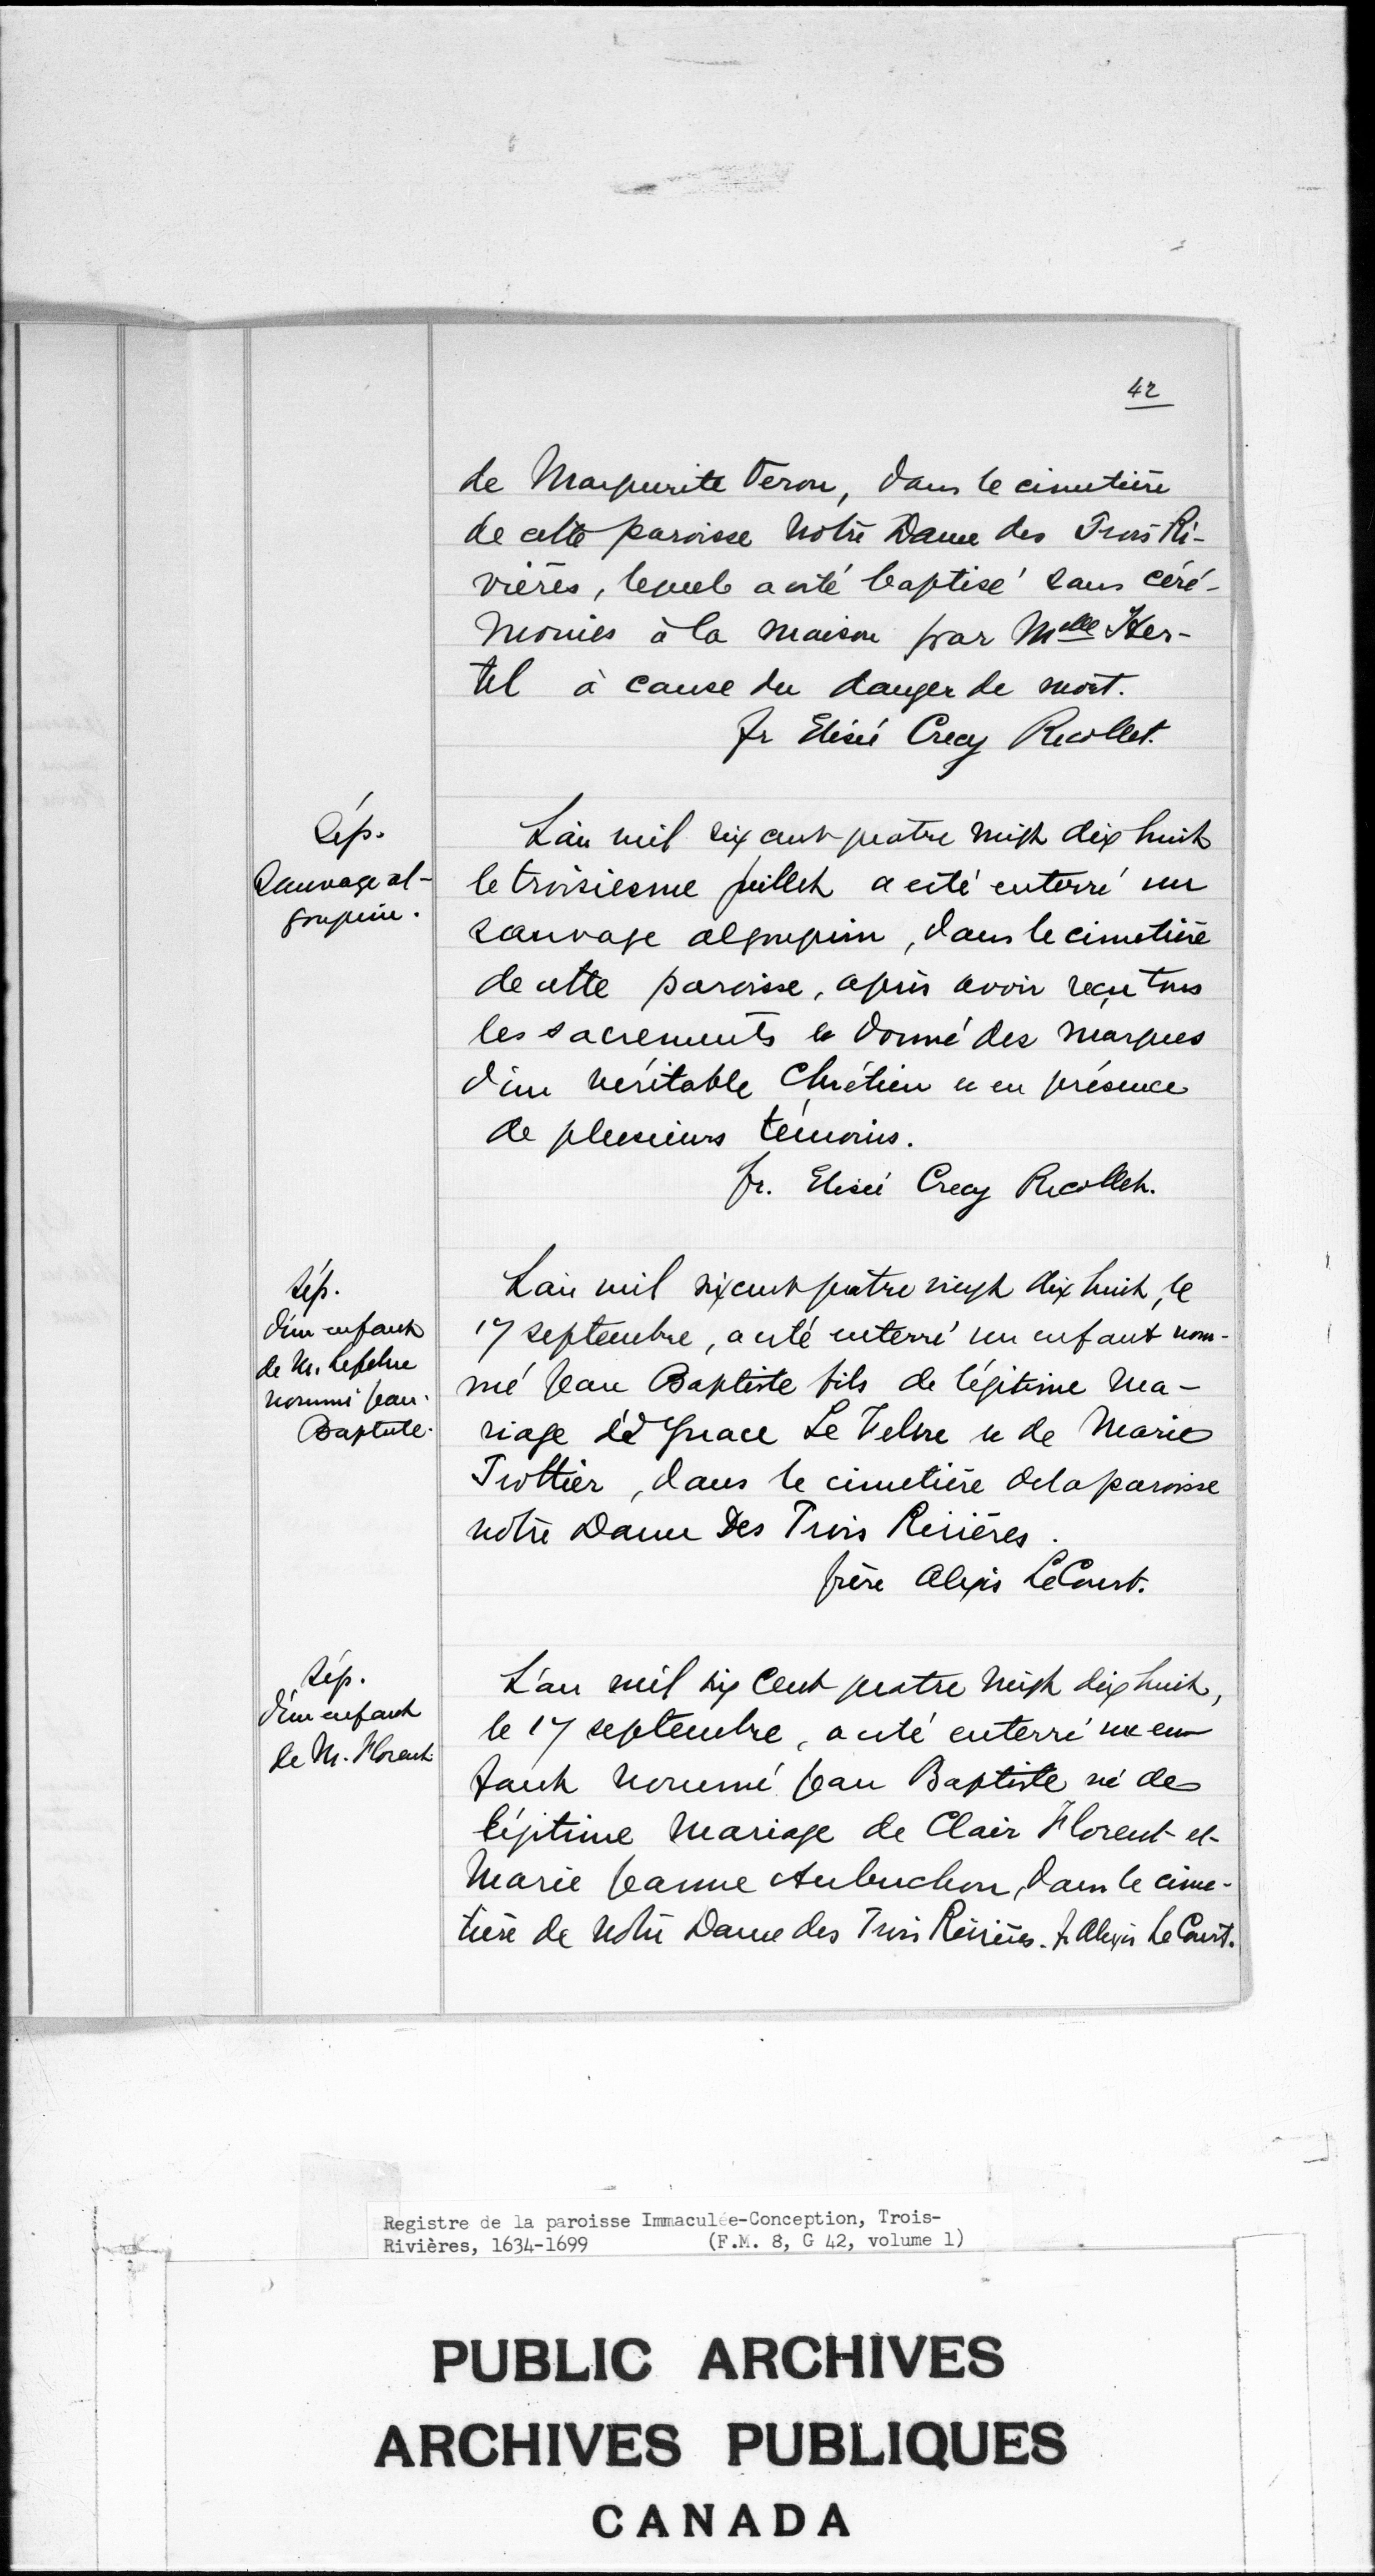 42
de Marguerite Veron, dans le cimetière
de cette paroisse Notre Dame des Trois Ri-
vières, lequel a esté baptisé sans céré-
monies à la maison par Melle Her-
tel à cause du danger de mort.
fr Elisée Crecy Recollet.
Sép.
Sauvage al-
gonquin.
L'an mil six cent quatre vingt dix huit
le troisiesme juillet a esté enterré un
sauvage algonquin, dans le cimetière
de cette paroisse, après avoir reçu tous
les sacrements et donné des marques
d'un véritable Chrétien et en présence
de plusieurs témoins.
fr. Elisée Crecy Recollet.
Sép.
d'un enfant
de M. Lefebvre
nommé Jean-
Baptiste.
L'an mil six cent quatre vingt dix huit, le
17 septembre, a esté enterré un enfant nom-
mé Jean Baptiste fils de légitime ma-
riage d'Ignace Le Febvre et de Marie
Trottier, dans le cimetière de la paroisse
notre Dame Des Trois Rivières.
frère Alexis LeCourt.
Sép.
d'un enfant
de M. Florent.
L'an mil six cent quatre vingt dix huit,
le 17 septembre, a esté enterré un en-
fant nommé Jean Baptiste né de
légitime mariage de Clair Florent et
Marie Jeanne Aubuchon, dans le cime-
tière de Notre Dame des Trois Rivières. fr Alexis LeCourt.
Registre de la paroisse Immaculée-Conception, Trois-
Rivières, 1634-1699 (F.M. 8, G 42, volume 1)
PUBLIC ARCHIVES
ARCHIVES PUBLIQUES
CANADA